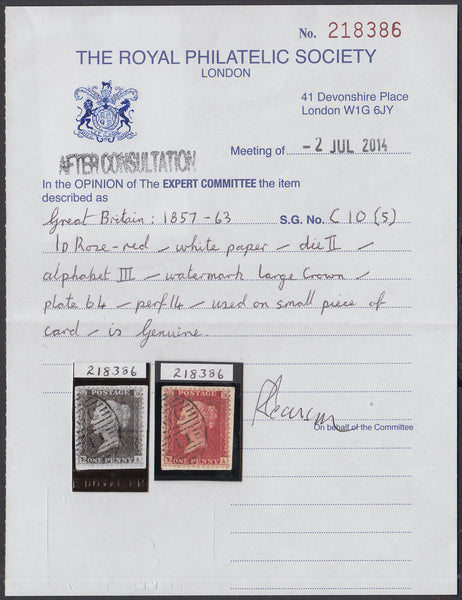 No. 218386
THE ROYAL PHILATELIC SOCIETY
LONDON
41 Devonshire Place
London W1G 6JY
AFTER CONSULTATION
Meeting of -2 JUL 2014
In the OPINION of The EXPERT COMMITTEE the item
described as
Great Britain: 1857-63 S.G. No. C10(5)
1D Rose-red - white paper - die II -
alphabet III - watermark large Crown -
plate 64 - perf.14 - used on small piece of
card - is genuine.
218386
218386
POSTAGE
POSTAGE
ONE PENNY A
ONE PENNY A
On behalf of the Committee